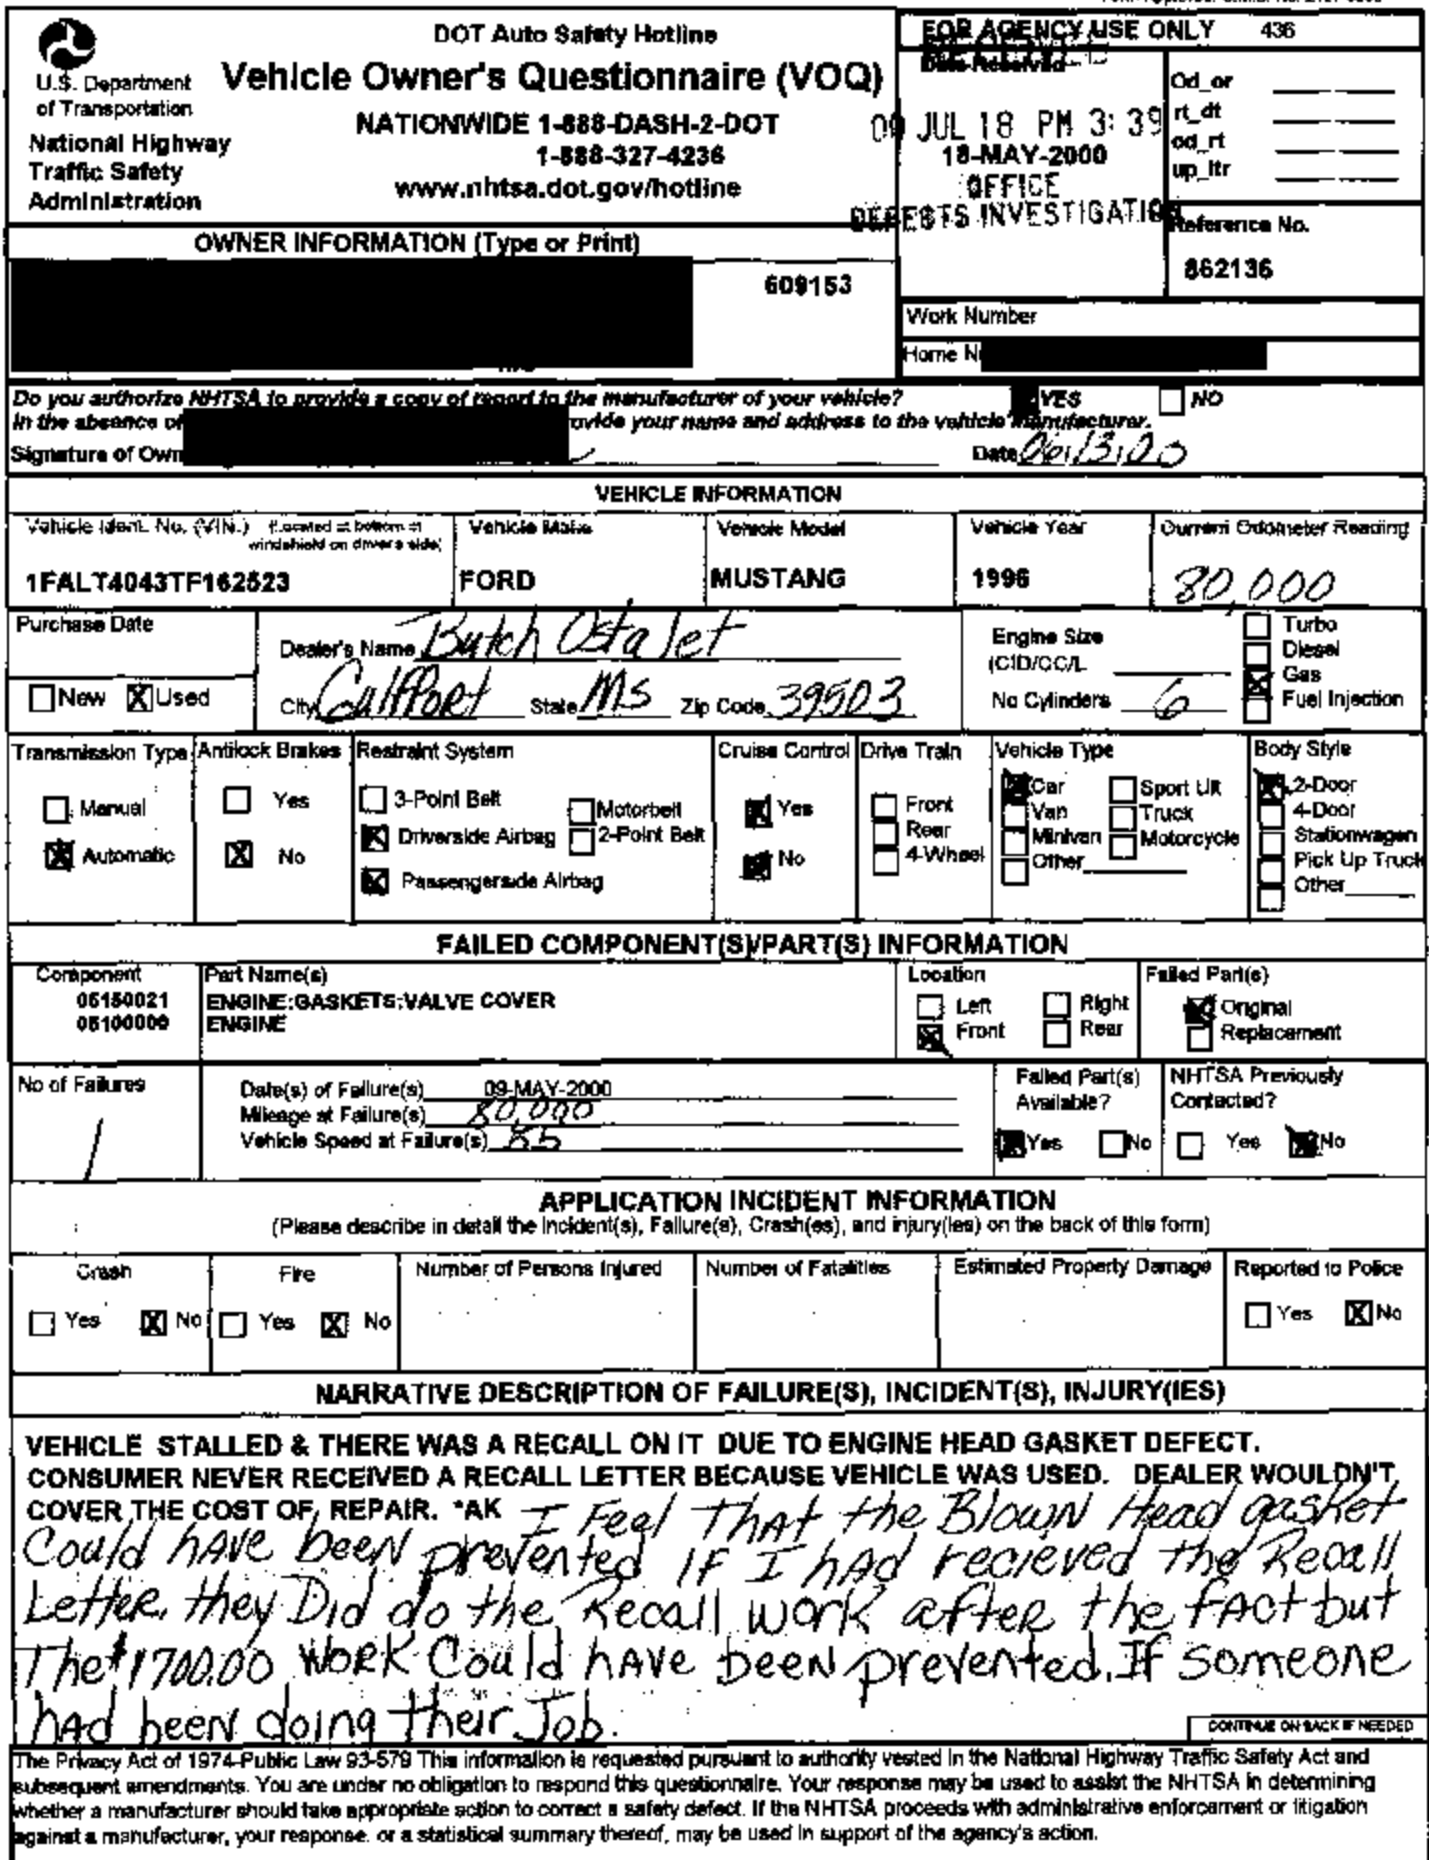 DOT Auto Safety Hotline
Vehicle Owner's Questionnaire (VOQ)
NATIONWIDE 1-888-DASH-2-DOT
1-888-327-4236
www.nhtsa.dot.gov/hotline
U.S. Department
of Transportation
National Highway
Traffic Safety
Administration
FOR AGENCY USE ONLY 436
Date Received
JUL 18 PM 3:39
18-MAY-2000
OFFICE
DEFECTS INVESTIGATION
Od_or
rt_dt
od_rt
up_ltr
Reference No.
862136
OWNER INFORMATION (Type or Print)
609153
Work Number
Home N
Do you authorize NHTSA to provide a copy of report to the manufacturer of your vehicle? YES NO
In the absence of ovide your name and address to the vehicle manufacturer.
Signature of Own Date 06/13/00
VEHICLE INFORMATION
Vehicle Ident. No. (VIN.) (Located at bottom of windshield on driver's side)
1FALT4043TF162523
Vehicle Make
FORD
Vehicle Model
MUSTANG
Vehicle Year
1996
Current Odometer Reading
80,000
Purchase Date
New Used
Dealer's Name Butch Ostalet
City Gulfport State Ms Zip Code 39503
Engine Size
(CID/CC/L
No Cylinders 6
Turbo
Diesel
Gas
Fuel Injection
Transmission Type
Manual
Automatic
Antilock Brakes
Yes
No
Restraint System
3-Point Belt
Driverside Airbag
Passengerside Airbag
Motorbelt
2-Point Belt
Cruise Control
Yes
No
Drive Train
Front
Rear
4-Wheel
Vehicle Type
Car
Van
Minivan
Other
Sport Ult
Truck
Motorcycle
Body Style
2-Door
4-Door
Stationwagen
Pick Up Truck
Other
FAILED COMPONENT(S)/PART(S) INFORMATION
Component Part Name(s)
05150021 ENGINE:GASKETS:VALVE COVER
05100000 ENGINE
Location
Left Right
Front Rear
Failed Part(s)
Original
Replacement
No of Failures
1
Date(s) of Failure(s) 09-MAY-2000
Mileage at Failure(s) 80,000
Vehicle Speed at Failure(s) 55
Failed Part(s)
Available?
Yes No
NHTSA Previously
Contacted?
Yes No
APPLICATION INCIDENT INFORMATION
(Please describe in detail the Incident(s), Failure(s), Crash(es), and injury(ies) on the back of this form)
Crash
Yes No
Fire
Yes No
Number of Persons Injured
Number of Fatalities
Estimated Property Damage
Reported to Police
Yes No
NARRATIVE DESCRIPTION OF FAILURE(S), INCIDENT(S), INJURY(IES)
VEHICLE STALLED & THERE WAS A RECALL ON IT DUE TO ENGINE HEAD GASKET DEFECT.
CONSUMER NEVER RECEIVED A RECALL LETTER BECAUSE VEHICLE WAS USED. DEALER WOULDN'T
COVER THE COST OF REPAIR. *AK I Feel THAt the Blown Head gasket
Could hAve been prevented IF I hAd recieved the Recall
Letter. they Did do the Recall work after the fAct but
The $1700.00 WORK Could hAve been prevented. If someone
hAd been doing their Job.
CONTINUE ON BACK IF NEEDED
The Privacy Act of 1974-Public Law 93-579 This information is requested pursuant to authority vested in the National Highway Traffic Safety Act and
subsequent amendments. You are under no obligation to respond this questionnaire. Your response may be used to assist the NHTSA in determining
whether a manufacturer should take appropriate action to correct a safety defect. If the NHTSA proceeds with administrative enforcement or litigation
against a manufacturer, your response, or a statistical summary thereof, may be used in support of the agency's action.